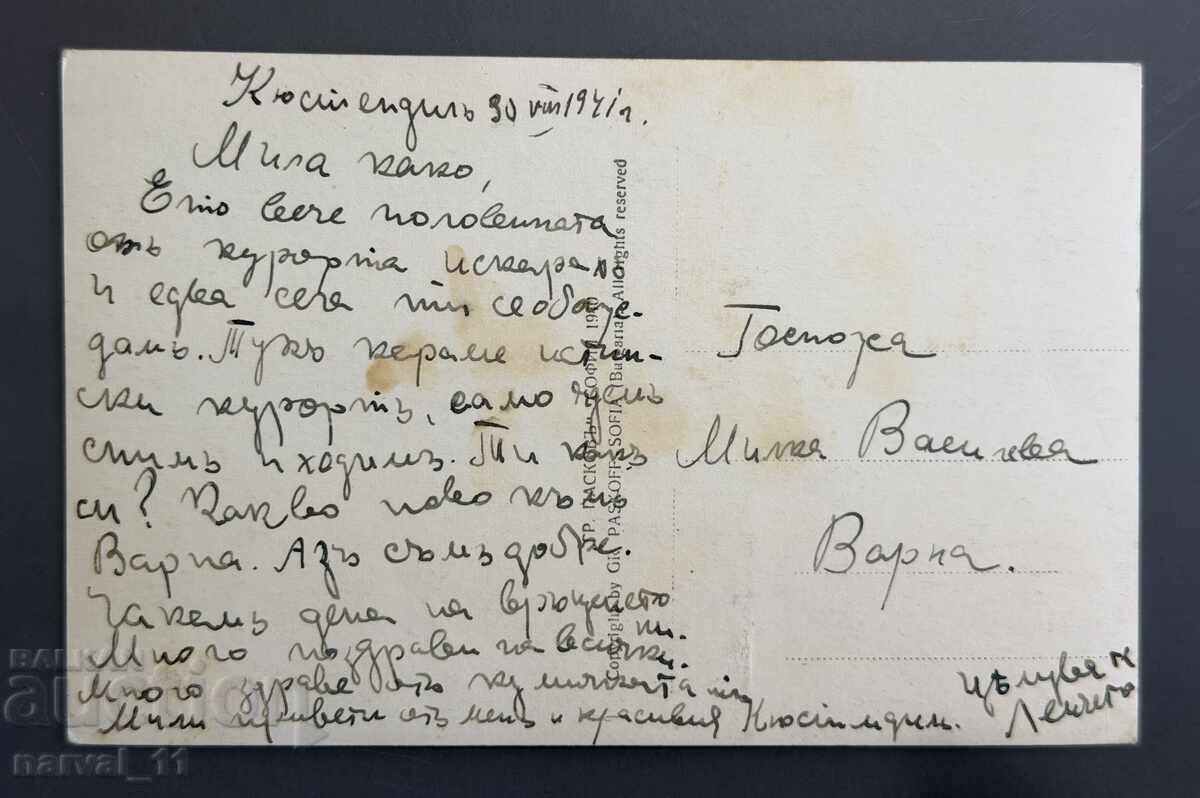 Кюстендилъ 30 VIII 1941 г.
Мила како,
Ето вече половината
отъ курорта искарахъ
и едва сега ти се обаж-
дамъ. Тукъ караме истин-
ски курортъ, само ядемъ
спимъ и ходимъ. Ти какъ
си? Какво ново къмъ
Варна. Азъ съмъ добре.
Чакамъ деня на връщането
ни.
Много поздрави на всички.
Много здраве отъ
Мили привети отъ менъ и красивия Кюстендил.
Цѣлува тѣ
Ленчето
Госпожа
Милка Василева
Варна.
ГР. ПАСКОВЪ — СОФИЯ 1940
Copyright by Gr. PASKOFF SOFIA (Bulgaria) All rights reserved
BALKAN
auction
narval_11